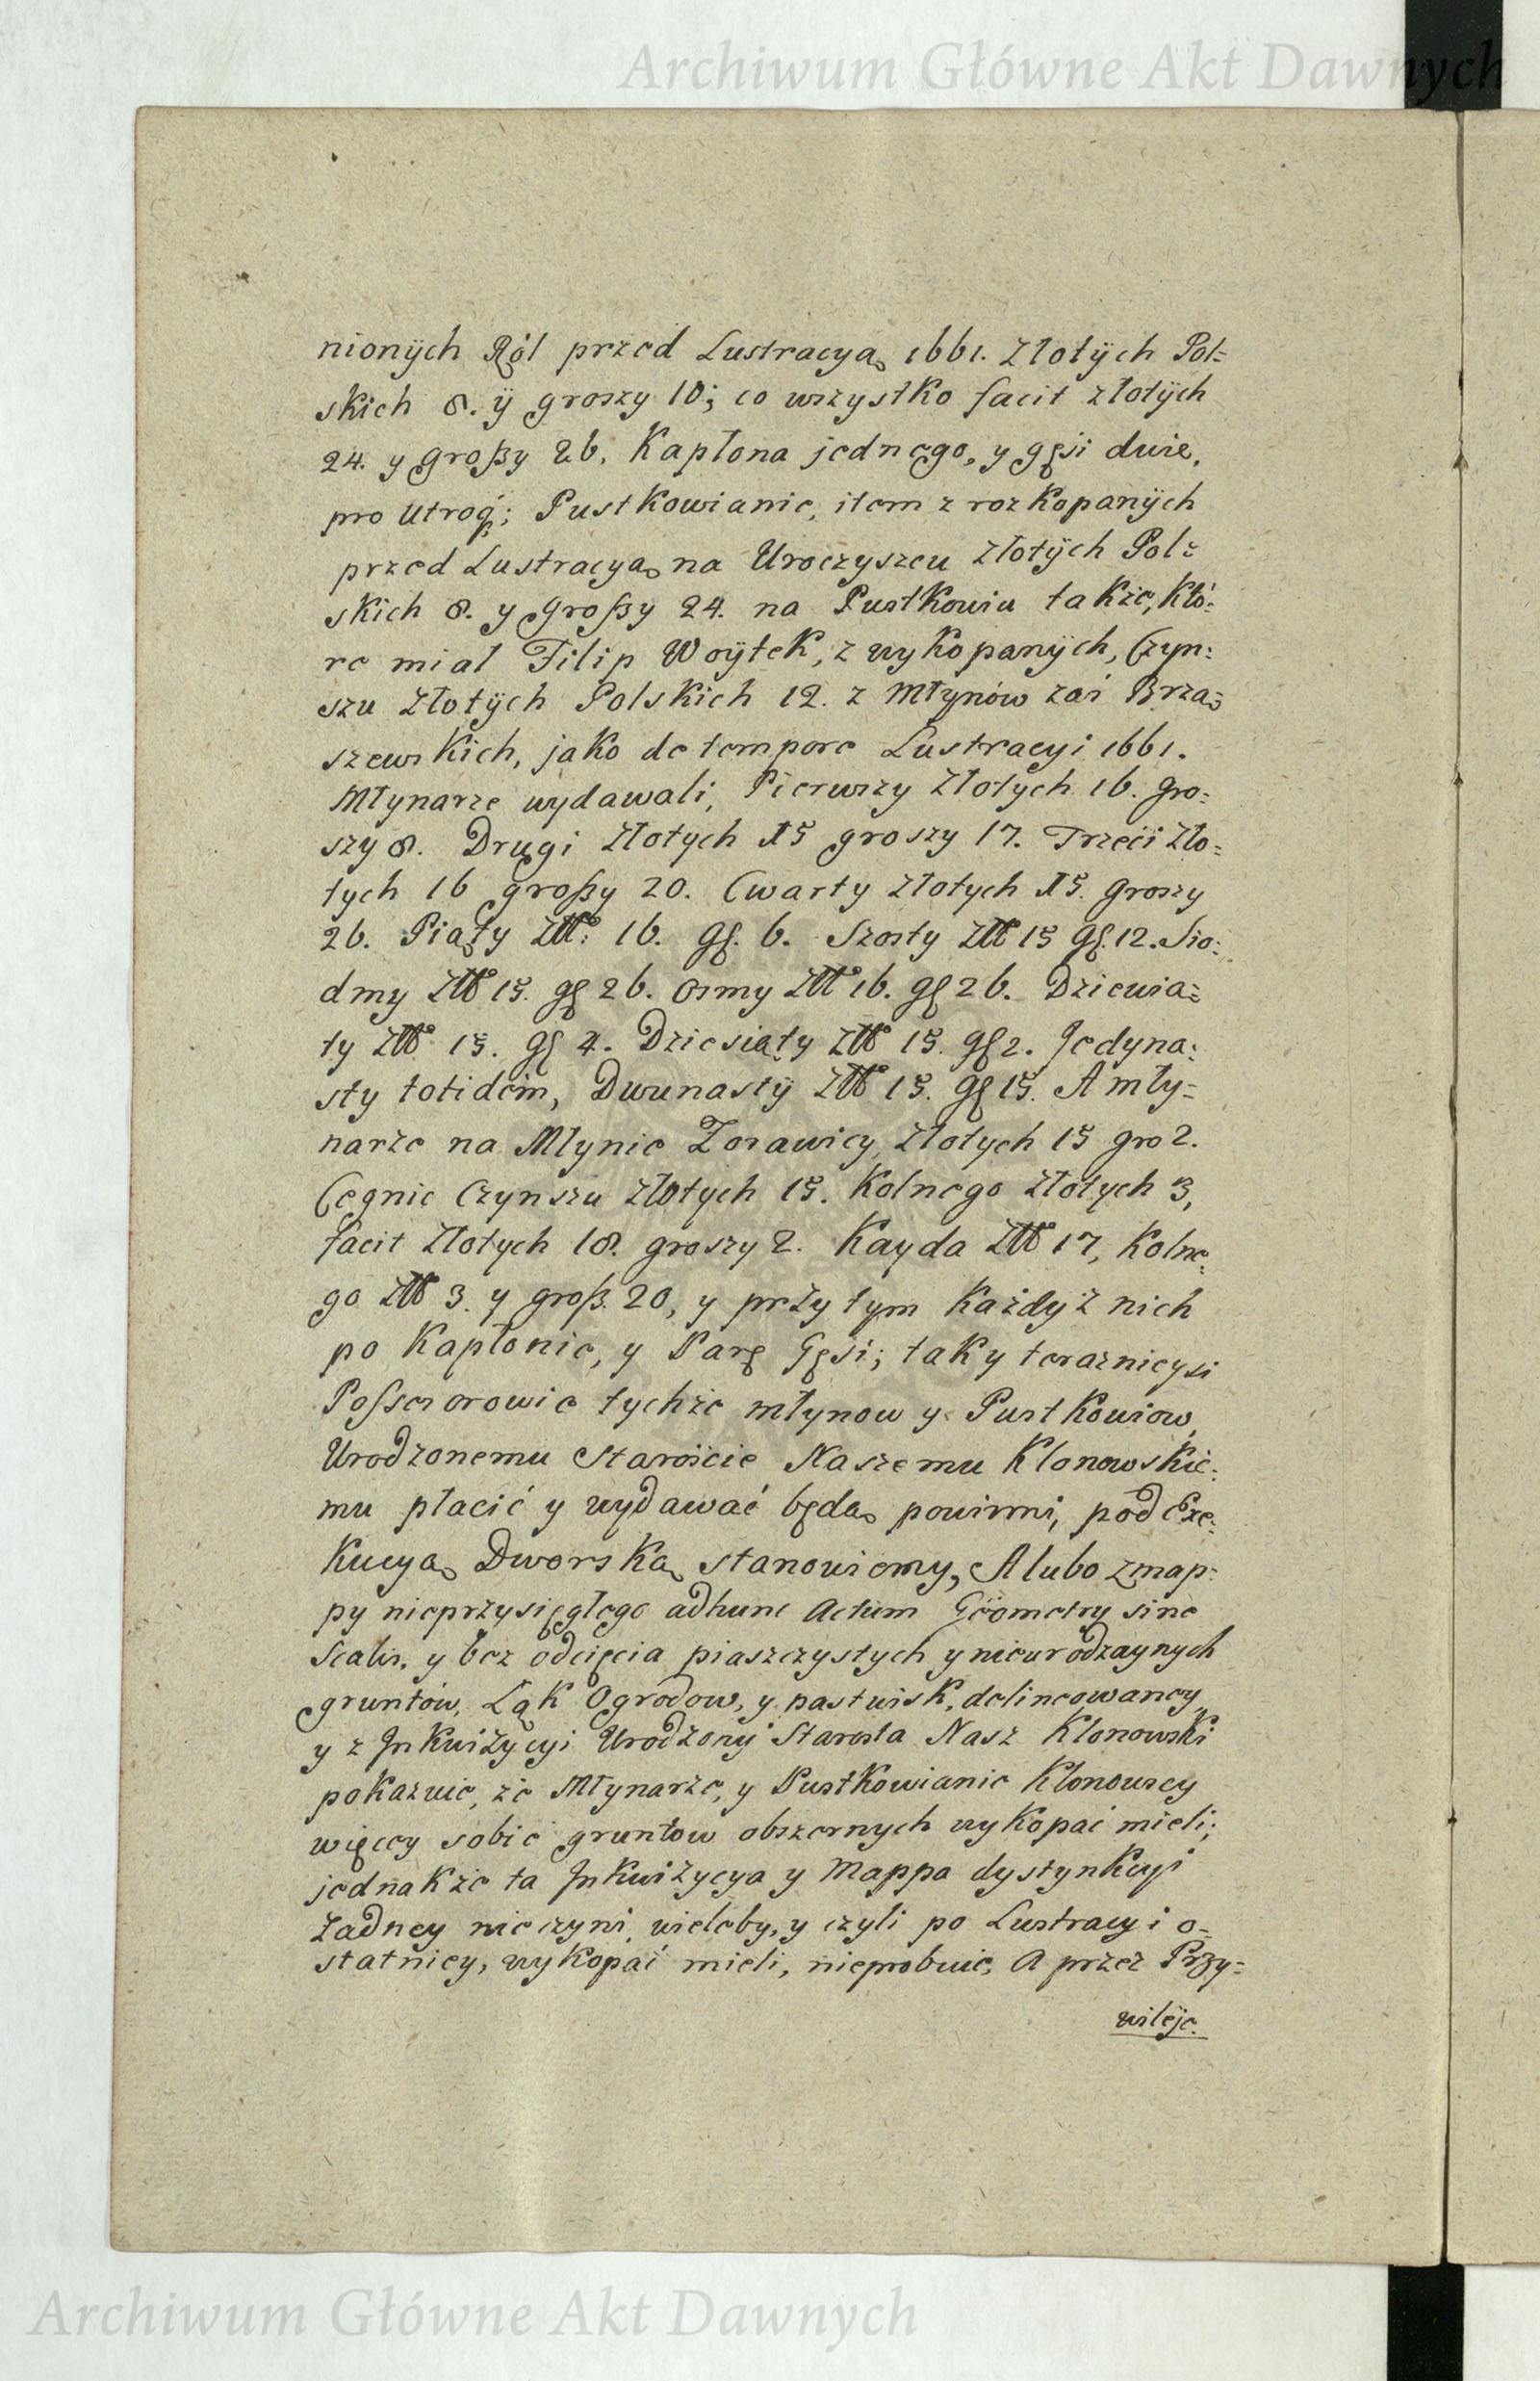 Archiwum Główne Akt Dawnych
nionÿch Ról przed Lustracyą 1661. Złotÿch Pol=
skich 8. ÿ groszy 10; co wszystko facit złotÿch
24. y großy 26. Kapłona jednego, y gęsi dwie,
pro utroq; Pustkowianie, item z rozkopanÿch
przed Lustracyą na Uroczyszcu Złotÿch Pol=
skich 8. y großy 24. na Pustkowiu także, któ=
re miał Filip Woÿtek, z wykopanÿch, Czyn=
szu Złotÿch Polskich 12. z Młynów zaś Brzą=
szewskich, jako de tempore Lustracyi 1661.
Młynarze wydawali, Pierwszy Złotych 16. gro=
szy 8. Drugi Złotych 15 groszy 17. Trzeći Zło=
tych 16 großy 20. Cwarty Złotych 15. groszy
26. Piąty Złł: 16. gſ. 6. Szosty Złł 15 gſ. 12. Sio=
dmy Złł 15. gſ 26. osmy Złł 16. gſ 26. Dziewią=
ty Złł 15. gſ 4. Dziesiąty Złł 15. gſ 2. Jedyna=
sty totidem, Dwunastÿ Złł 15. gſ 15. A mły=
narze na Młynie Zorawicy, Złotych 15 gro 2.
Cegnie Czynszu Złotych 15. Kolnego Złotych 3,
facit Złotych 18. groszy 2. Kayda Złł 17, Kolne=
go Złł 3. y groß. 20, y przy tym Każdy z nich
po Kapłonie, y Parę Gęsi; tak y teraznieysi
Poſsesorowie tychże młynow y Pustkowiow,
Urodzonemu Staroście Naszemu Klonowskie=
mu płacić y wydawać będą powinni, pod Exe=
kucyą Dworską stanowiemy, Alubo z map=
py nieprzysięgłego adhunc actum Gëometry sine
Scalis, y bez odcięcia piaszczystych y nieurodzaynych
gruntów, Ląk Ogrodow, y pastwisk, delineowaney,
y z Jnkwizycyi Urodzony Starosta Nasz Klonowski
pokazuie, że Młynarze, y Pustkowianie Klonowscy
więcey sobie gruntow obszernych wykopać mieli;
jednakże ta Jnkwizycya y Mappa dystynkcyi
żadney nie czyni, wieleby, y czyli po Lustracyi o=
statniey, wykopać mieli, nieprobuie, A przez Przy=
wileje.
Archiwum Główne Akt Dawnych